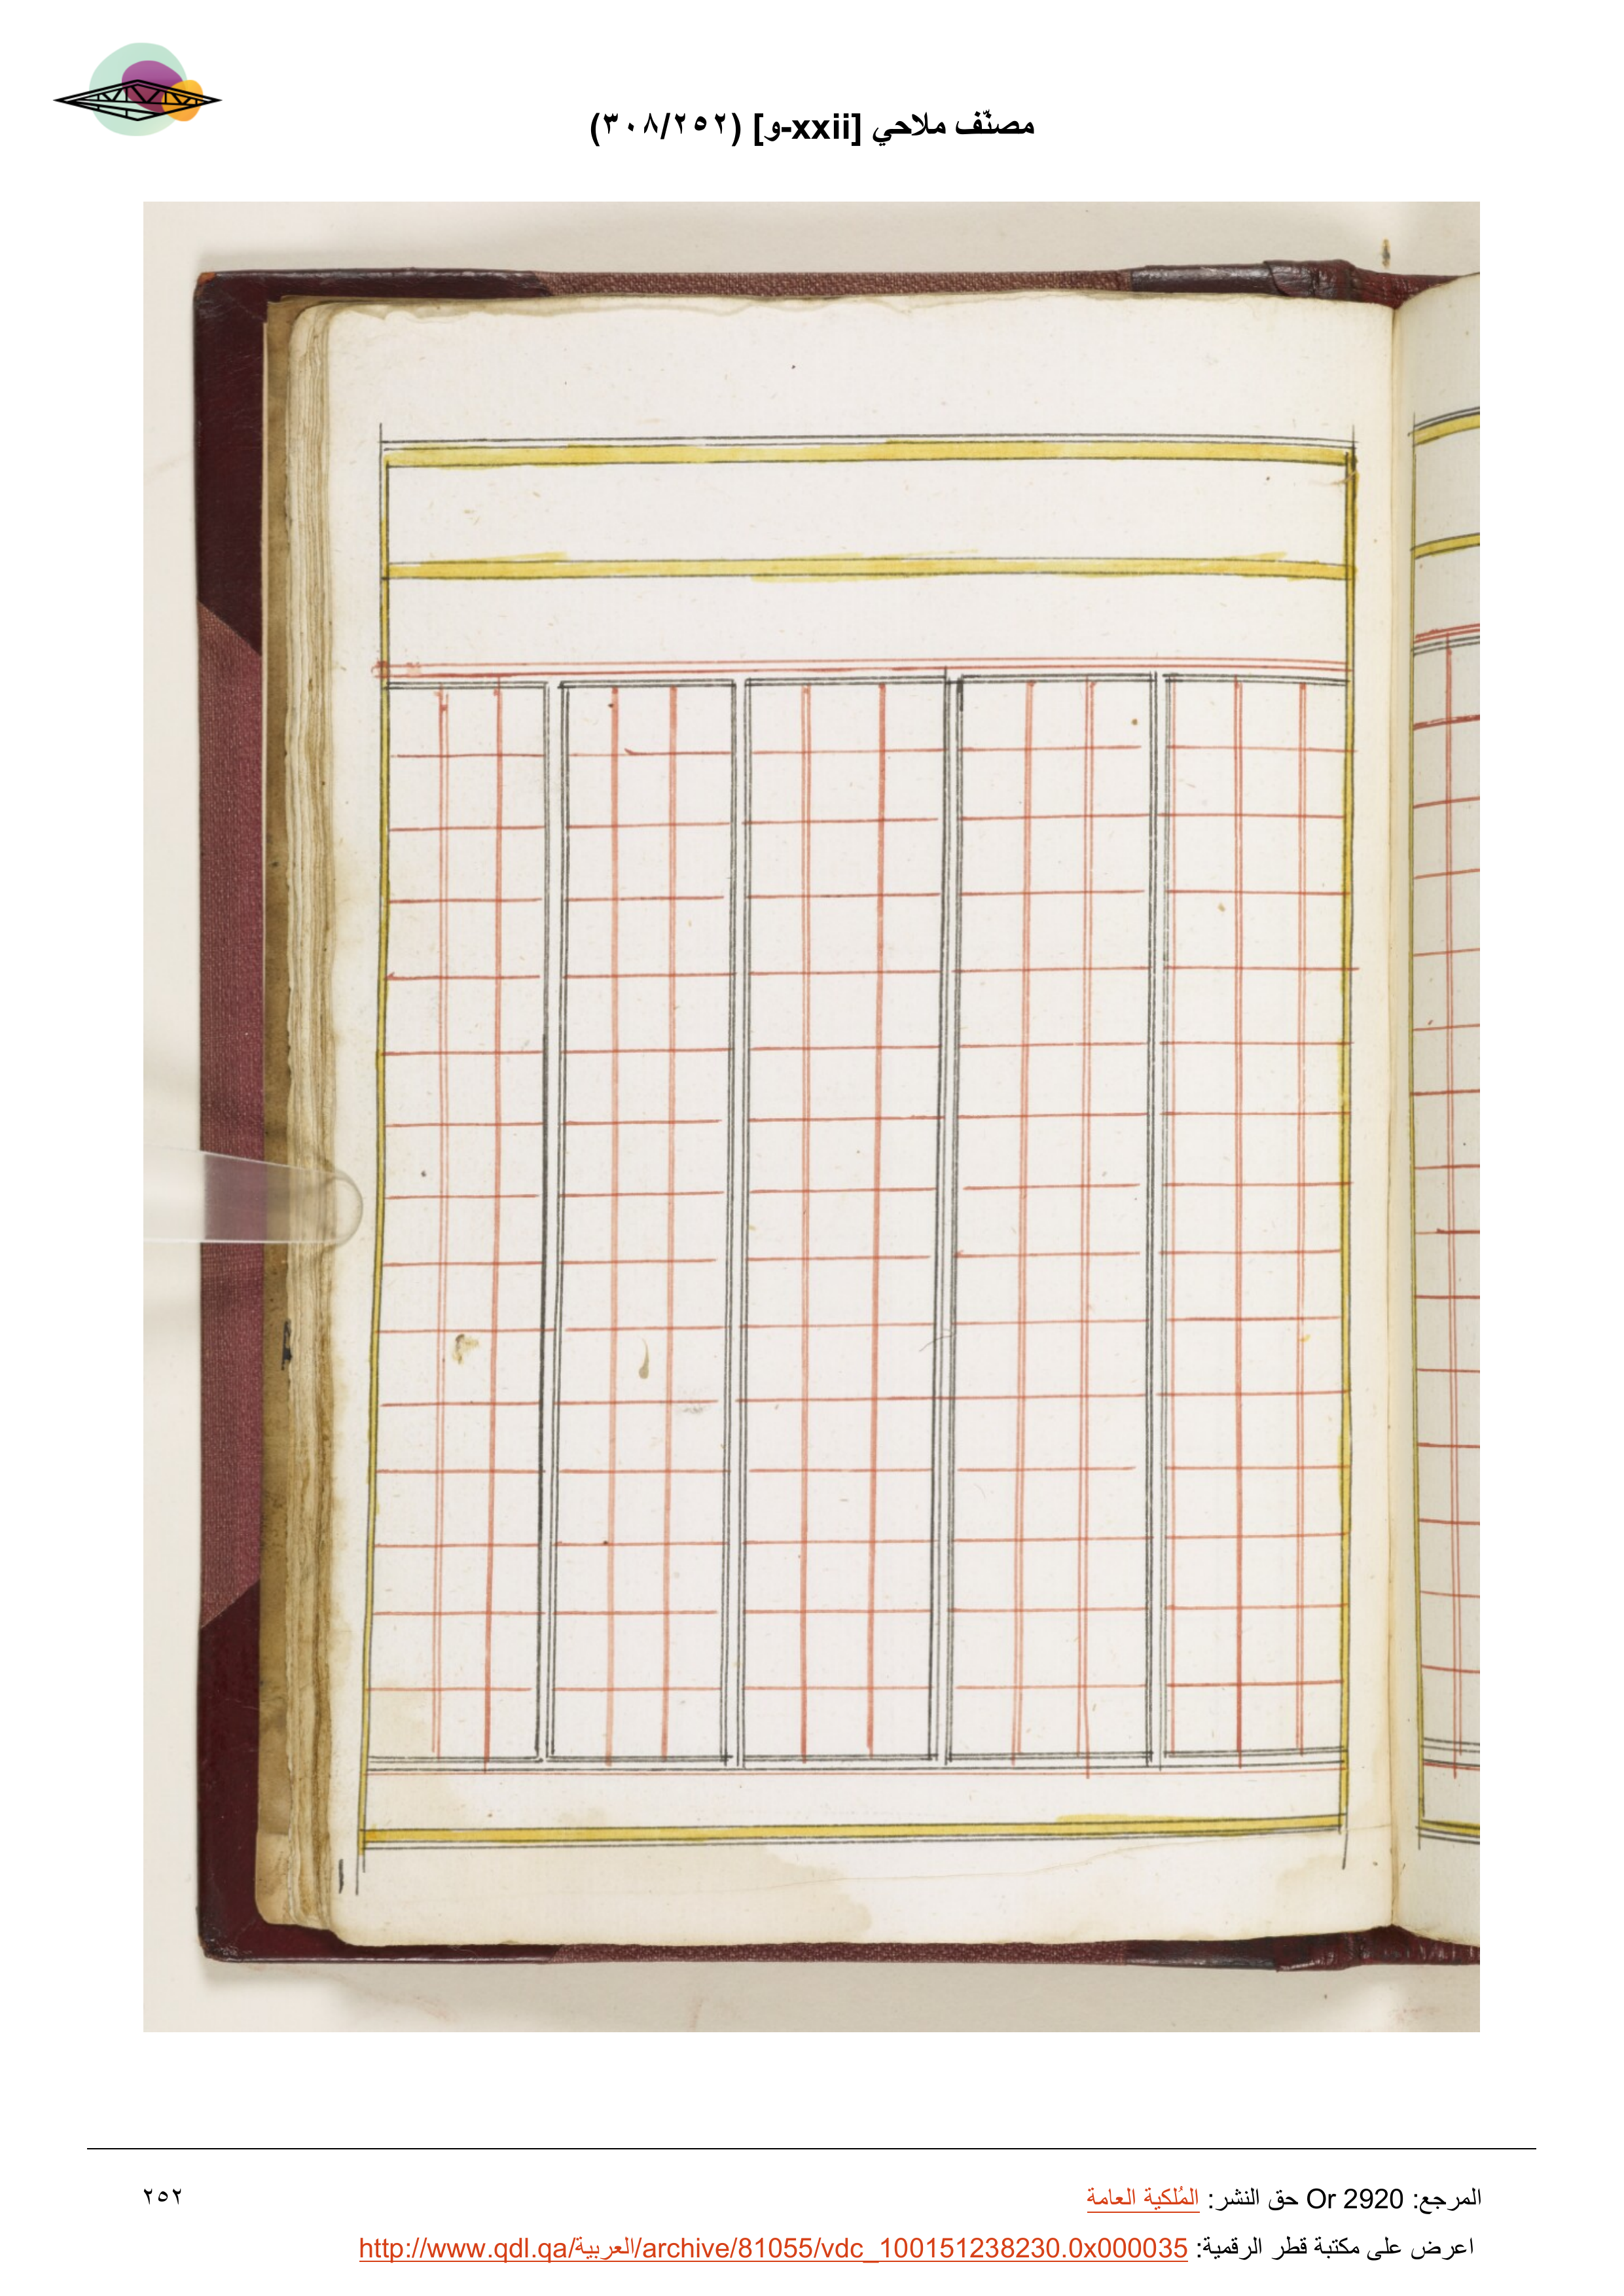 مصنّف ملاحي [xxii-و] (٣٠٨/٢٥٢)
المرجع: Or 2920 حق النشر: المُلكية العامة
٢٥٢
اعرض على مكتبة قطر الرقمية: http://www.qdl.qa/العربية/archive/81055/vdc_100151238230.0x000035